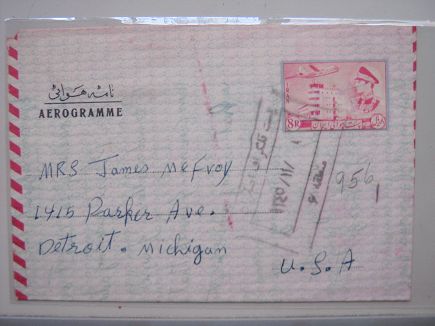 نامه هوائی
AEROGRAMME
8R
MRS James McEvoy
1415 Parker Ave.
Detroit. Michigan
U.S.A
956